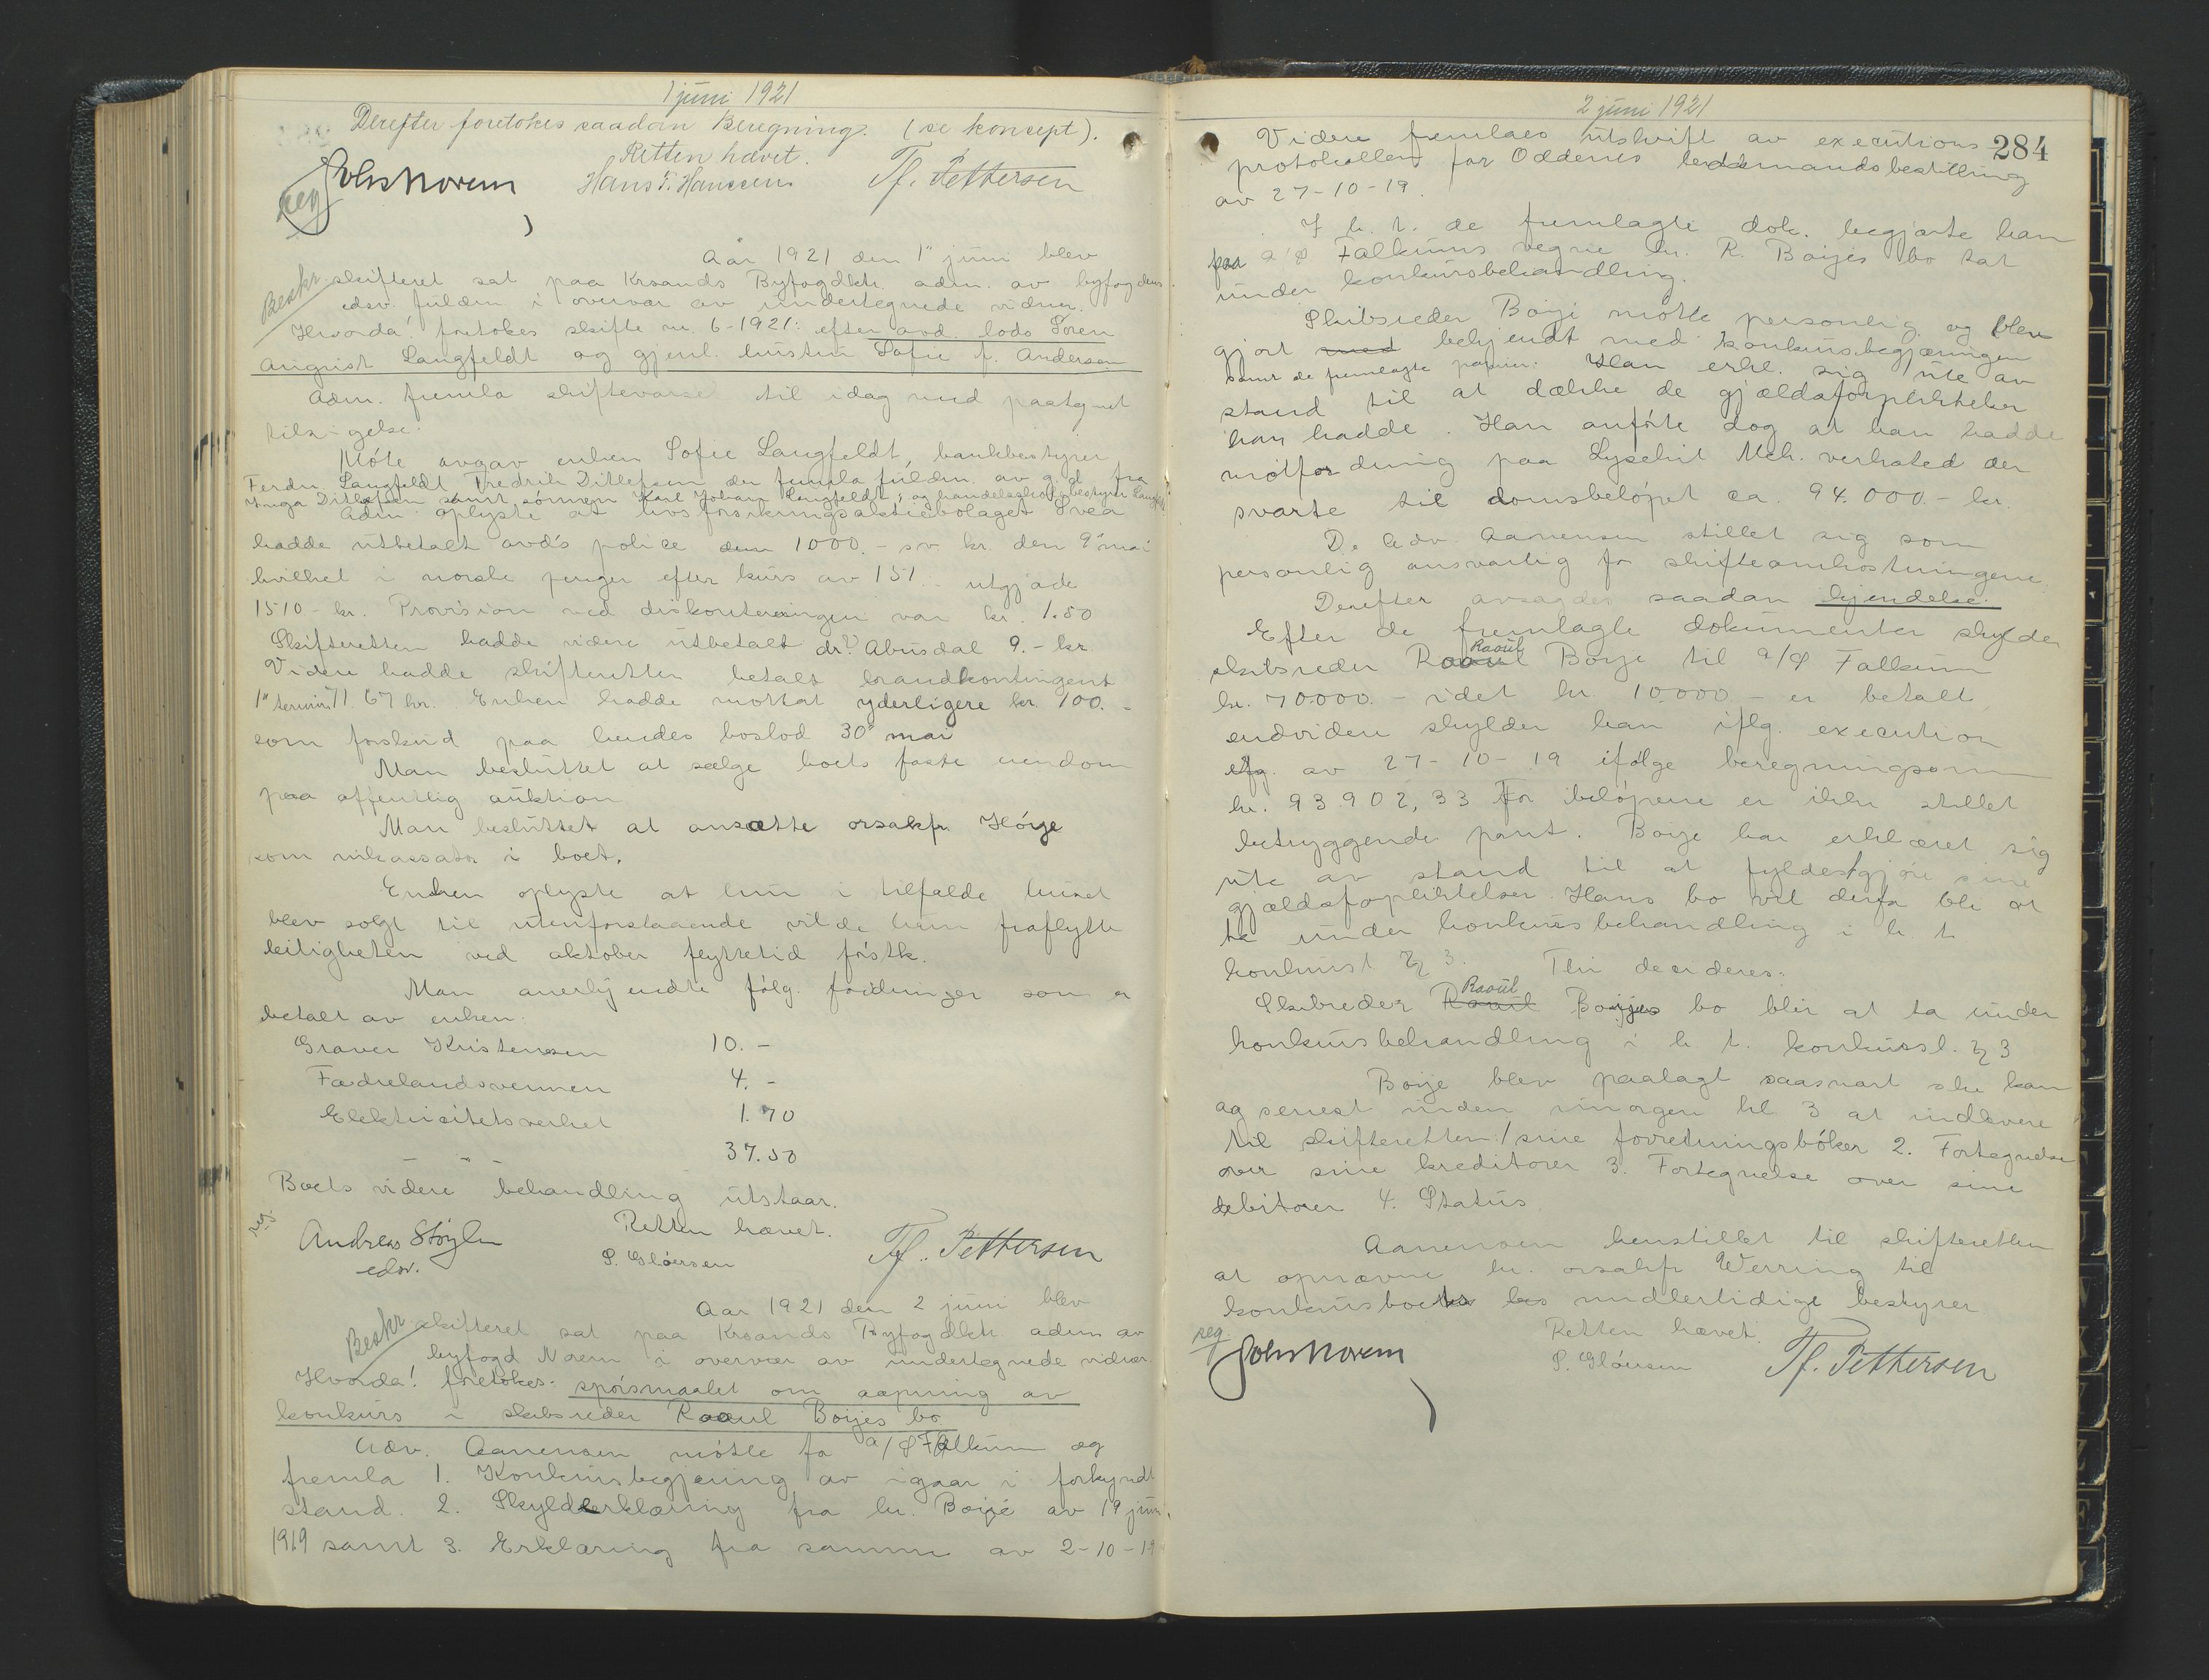 1 juni 1921
Derefter foretokes saadan Beregning. (se koncept).
Retten hævet.
reg Johs Norem Hans F. Hanssen Tf. Pettersen
Aar 1921 den 1" juni blev
Beskr skifteret sat paa Krsands Byfogdktr. adm. av byfogdens
edsv. fuldm. i overvær av undertegnede vidner.
Hvorda! foretokes skifte nr. 6-1921: efter avd. lods Sören
August Langfeldt og gjenl. hustru Sofie f. Andersen
Adm. fremla skiftevarsel til idag med paategnet
tilsigelse.
Móte avgav enken Sofie Langfeldt, bankbestyrer
Ferdn. Langfeldt Fredrik Ditlefsen der fremla fuldm. av g.d. fra
Inga Ditlefsen samt sönnen Karl Johan Langfeldt, og handelsskolebestyrer Langfeldt
Adm. oplyste at livsforsikringsaktiebolaget Svea
hadde utbetalt avd's police den 1000.- sv. kr. den 9" mai
hvilket i norske penger efter kurs av 151.- utgjorde
1510 - kr. Provision ved diskonteringen var kr. 1.50
Skifteretten hadde videre utbetalt dr. Abusdal 9.- kr.
Videre hadde skifteretten betalt brandkontingent
1" termin 71.67 kr. Enken hadde mottat yderligere kr. 100.-
som forskud paa hendes boslod 30" mai
Man besluttet at sælge boets faste eiendom
paa offentlig auktion
Man besluttet at ansætte orsakfr. Höye
som inkassator i boet.
Enken oplyste at hun i tilfælde huset
blev solgt til utenforstaaende vilde hun fraflytte
leiligheten ved oktober flyttetid förstk.
Man anerkjendte fölg. fordringer som er
betalt av enken:
Graver Kristensen 10.-
Fædrelandsvennen 4.-
Elektricitetsverket 1.70
37.50
Boets videre behandling utstaar.
reg. Retten hævet.
Andreas Stöylen S. Glöersen Tf. Pettersen
edsv.
Aar 1921 den 2 juni blev
Beskr skifteret sat paa Krsands Byfogdktr. adm av
byfogd Norem i overvær av undertegnede vidner.
Hvorda! foretokes: spörsmaalet om aapning av
konkurs i skibsreder Raoul Boijes bo
Adv. Aanensen mötte for a/s Falkum og
fremla 1. Konkursbegjæring av igaar i forkyndt
stand. 2. Skylderklæring fra hr. Boije av 19 juni
1919 samt 3. Erklæring fra samme av 2-10-19
2 juni 1921
284
Videre fremlaes utskrift av executions
protokollen for Oddernes lensmandsbestilling
av 27-10-19.
I h. t. de fremlagte dok. begjærte han
paa a/s Falkums vegne hr. R. Boijes bo tat
under konkursbehandling.
Skibsreder Boije mötte personlig og blev
gjort med bekjendt med konkursbegjæringen
samt de fremlagte papirer. Han erkl. sig ute av
stand til at dække de gjældsforpliktelser
han hadde. Han anförte dog at han hadde
motfordring paa Lysekil Mek. verksted der
svarte til domsbelöpet ca. 94.000.- kr.
D. Adv. Aanensen stillet sig som
personlig ansvarlig for skifteomkostningene.
Derefter avsagdes saadan kjendelse:
Efter de fremlagte dokumenter skylder
skibsreder Raoul Raoul Boije til a/s Falkum
kr. 70.000.- idet kr. 10.000 - er betalt
endvidere skylder han iflg. execution
efg. av 27-10-19 ifølge beregningsom
kr. 93902,33 For belöpene er ikke stillet
betryggende pant. Boije har erklæret sig
ute av stand til at fyldestgjöre sine
gjældsforpliktelser. Hans bo vil derfor bli at
ta under konkursbehandling i h. t.
konkursl § 3. Thi deeideres:
Skibsreder Raoul Raoul Boijes bo blir at ta under
konkursbehandling i h. t. konkursl. § 3
Boije blev paalagt saasnart ske kan
og senest inden imorgen kl. 3 at indlevere
til skifteretten: 1 sine forretningsböker 2. Fortegnelse
over sine kreditorer 3. Fortegnelse over sine
debitorer 4. Status.
Aanensen henstillet til skifteretten
at opnævne hr. orsakfr Werring til
konkursboets midlertidige bestyrer
reg. Retten hævet.
Johs Norem S. Glöersen Tf. Pettersen